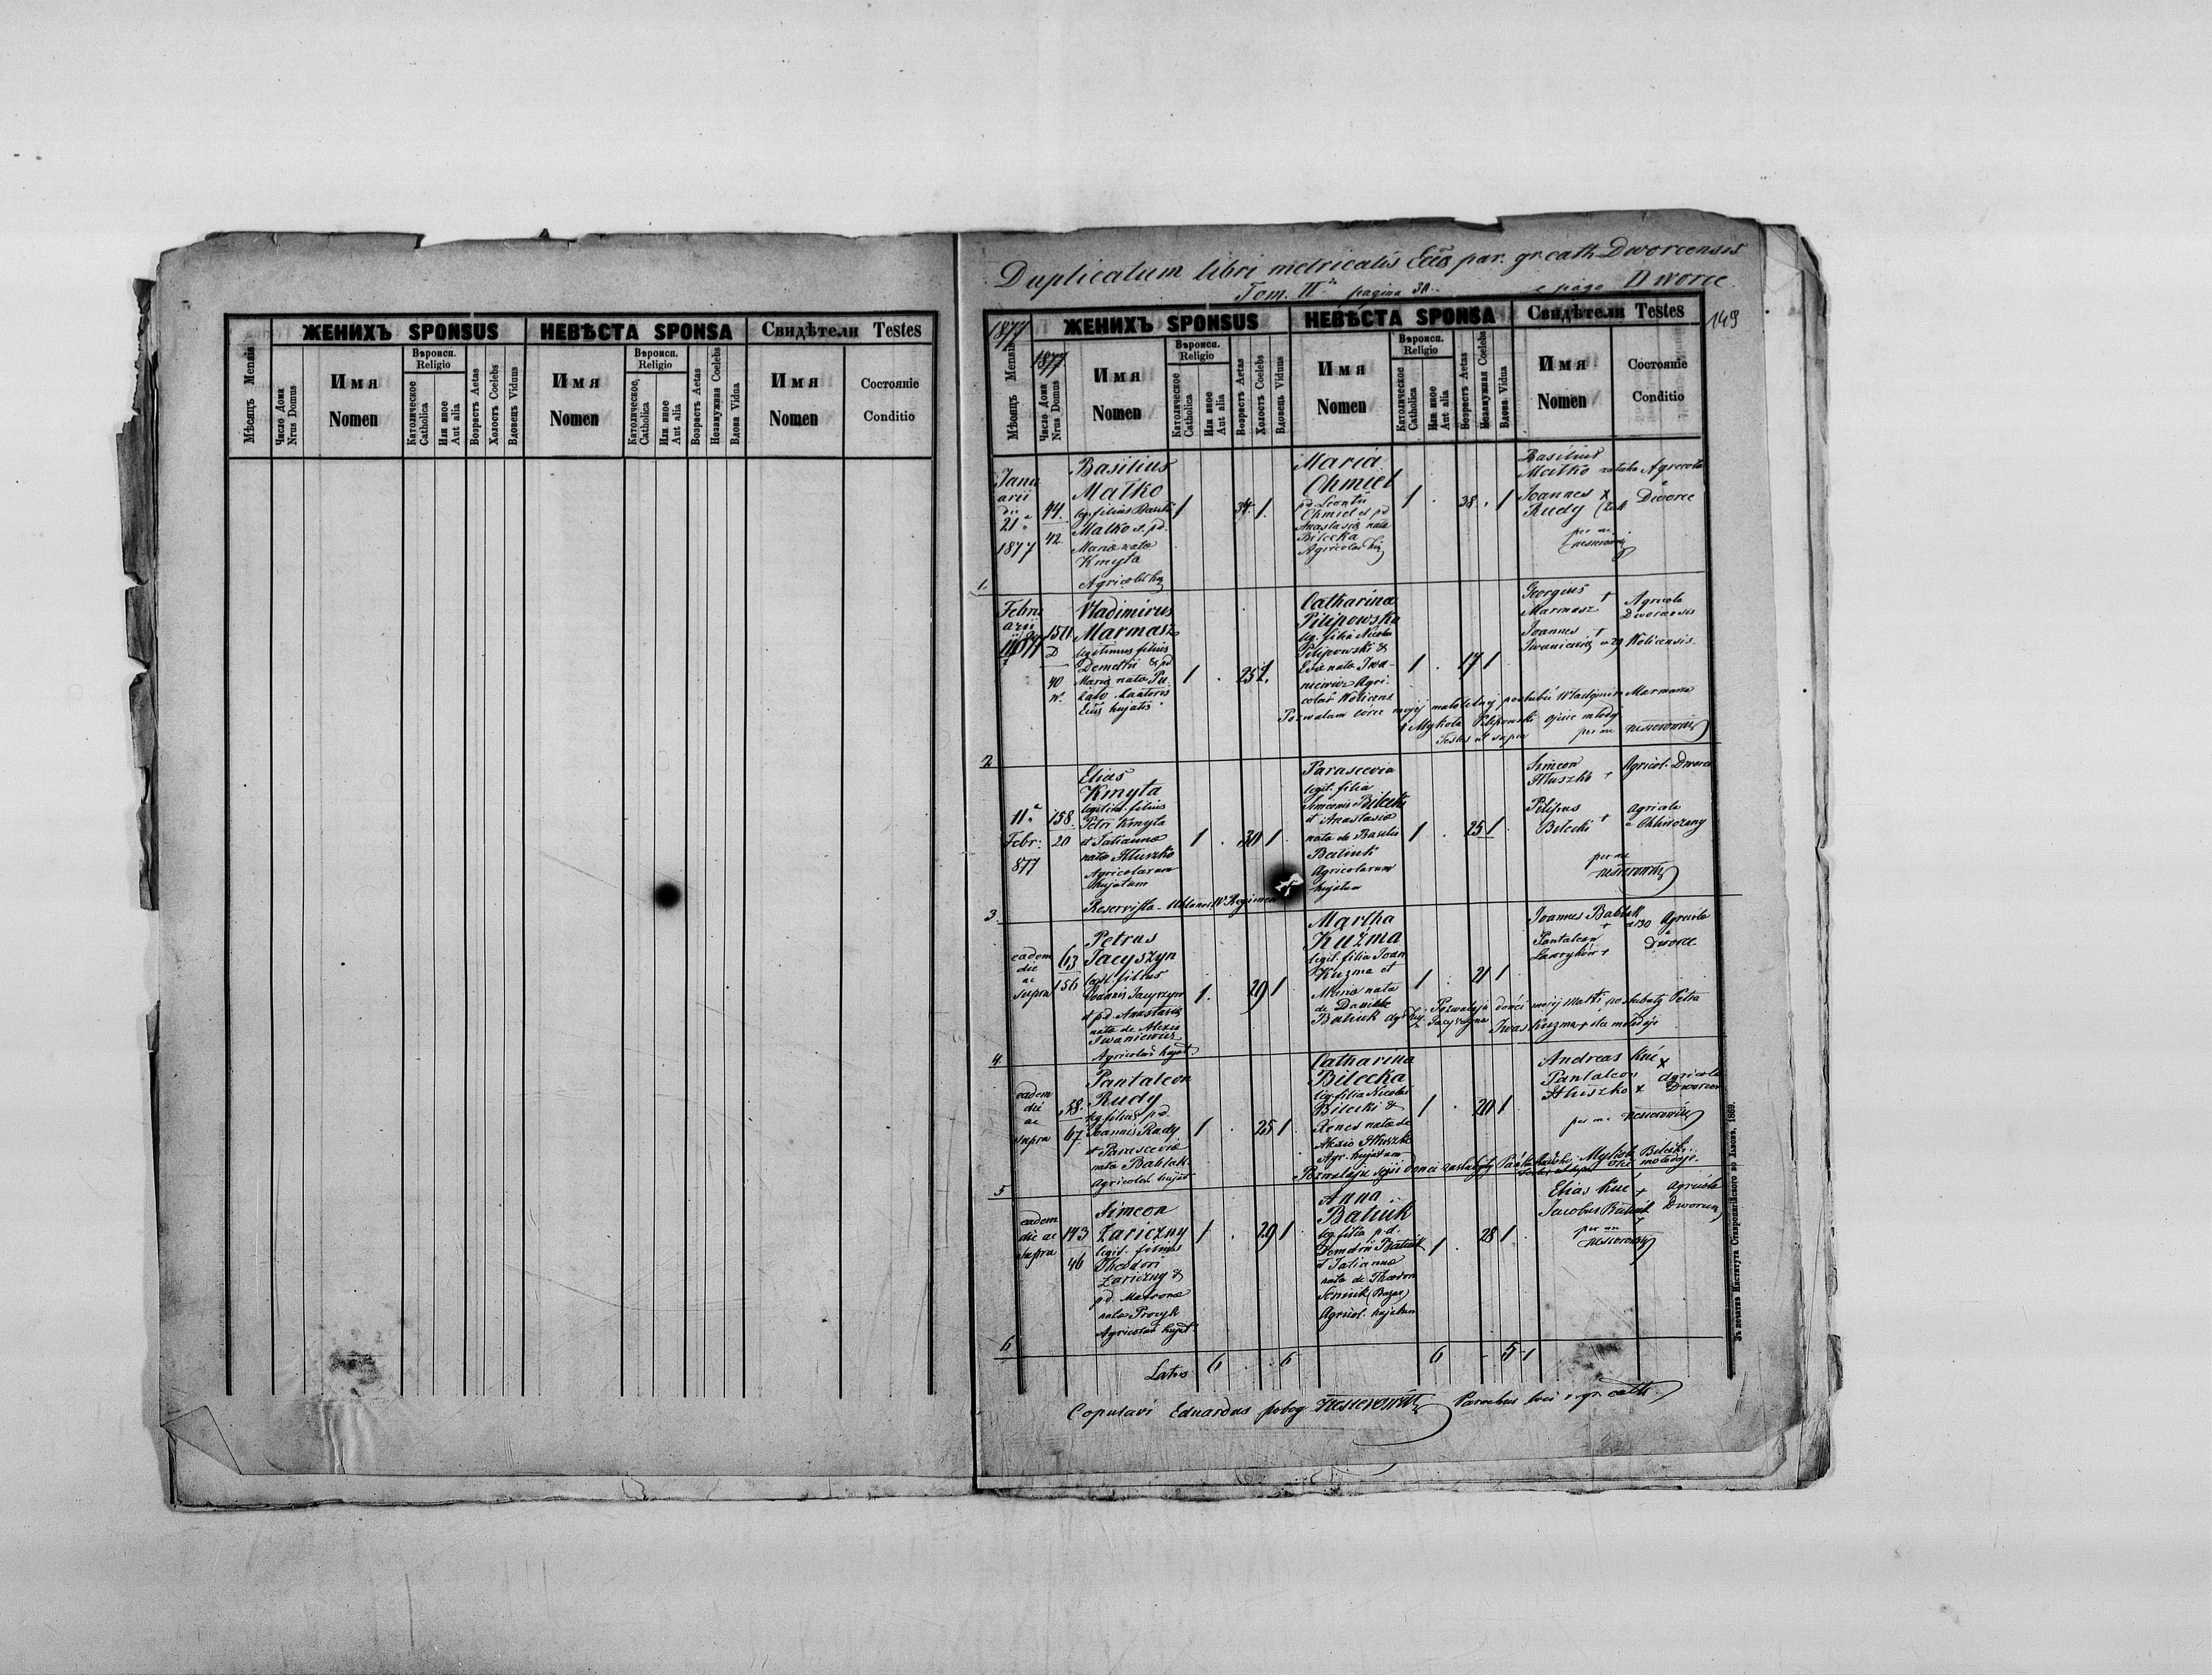 ЖЕНИХЪ SPONSUS
НЕВѢСТА SPONSA
Свидѣтели Testes
Мѣсяцъ Mensis
Число Дома
Nrus Domus
Имя
Nomen
Вѣроисп.
Religio
Католическое
Catholica
Или иное
Aut alia
Возрастъ Aetas
Холостъ Coelebs
Вдовецъ Viduus
Имя
Nomen
Вѣроисп.
Religio
Католическое,
Catholica
Или иное
Aut alia
Возрастъ Aetas
Незамужная Coelebs
Вдова Vidua
Имя
Nomen
Состояніе
Conditio
Duplicatum libri metricalis Eccls par. gr. cath. Dworcensis
Tom. II pagina 30. e pago Dworce.
149
1877
ЖЕНИХЪ SPONSUS
НЕВѢСТА SPONSA
Свидѣтели Testes
Мѣсяцъ Mensis
1877
Число Дома
Nrus Domus
Имя
Nomen
Вѣроисп.
Religio
Католическое
Catholica
Или иное
Aut alia
Возрастъ Aetas
Холостъ Coelebs
Вдовецъ Viduus
Имя
Nomen
Вѣроисп.
Religio
Католическое
Catholica
Или иное
Aut alia
Возрастъ Aetas
Незамужная Coelebs
Вдова Vidua
Имя
Nomen
Состояніе
Conditio
1.
Janu
arii
die
21
1877
44.
42.
Basilius
Matko
leg. filius Basilii
Matko et pd.
Maria nata
Kmyta
Agricol. huj
1
34. 1.
Maria
Chmiel
pd. Leontii
Chmiel et pd
Anastasia nata
Bilecka
Agricolar. huj
1 . 38. . 1
Basilius
Matko
Joannes x
Rudy
per me
Nesterowicz
Agricola
a
Dworce
2
Febru
arii
11 1877
151
40
Vladimirus
Marmasz
legitimus filius
Demetrii & pd
Maria nata Pu
Cantoris
Eccls hujatis
1 . 25 1.
Catharina
Pilipowska
leg. filia Nicolai
Pilipowski &
Eva nata Iwa-
niewicz Agri-
colar Wolicens
1 . 17 1
Georgius +
Marmasz
Joannes +
Iwaniewicz
Agricola
Dworcensis
Wolicensis.
Pozwalam córce mojej małoletnej poslubić Wladymira Marmasza
+ Mykola Pilipowski ojciec młodej
Testes ut supra per me Nesterowicz
3
11
Febr:
877
158.
20
Elias
Kmyta
legitim. filius
Petri Kmyta
et Tatianna
nata Hluszko
Agricolarum
hujatum
1 . 30 1
Parascevia
legit. filia
Simeonis Bilecki
et Anastasia
nata de Basilio
Batiuk
Agricolarum
hujatum
1 . 25 1
Simeon
Hluszko +
Pilipus
Bilecki +
per me
Nesterowicz
Agricol. Dworce
Agricola
a Chliwczany
Reservista Ulanor. IV Regimen
4.
eadem
die
ac
supra
63
156
Petrus
Jacyszyn
legit. filius
Joannis Jacyszyn
et pd. Anastasia
nata de Alexio
Iwaniewicz
Agricolar hujat.
1. 29 1
Martha
Kuźma
legit. filia Joan
Kuzma et
Maria nata
de Daniele
Batiuk Agr. huj.
1 . 21 1
Joannes Bablak
+
Pantaleon
Lawryków +
a 130 Agricola
a
Dworce
Pozwalaju donci mojij Marti poslubyty Petra
Jacyszyna Iwas Kuzma + ita mołodoji
5
eadem
die
ac
supra
58.
67
Pantaleon
Rudy
leg. filius pd.
Joannis Rudy
et Parascevia
nata Bablak
Agricolar. hujat
1 . 25 1
Catharina
Bilecka
leg. filia Nicolai
Bilecki &
Xenes nata de
Alexio Hluszko
Agr. hujatum
1 . 20 1
Andreas Kuc x
Pantaleon
Hluszko x
per me Nesterowicz
Agricola
Dworcen
6
eadem
die ac
supra
143
46
Simeon
Zariczny
legit. filius
Theodori
Zariczny &
pd. Matrona
nata Procyk
Agricolar hujat
1 . 29 1
Anna
Batiuk
leg. filia pd.
Demetrii Batiuk
et Tatianna
nata de Theodoro
Seniuk
Agricol. hujatum
1 . 28 1
Elias Kuc +
Jacobus Batiuk
per me
Nesterowicz
Agricola
Dworcen
Latus 6 . . 6 6 . 5 1
Copulavi Eduardus Nesterowicz Parochus loci r. gr. cath.
Зъ печатни Института Ставропигійского во Львовѣ, 1869.